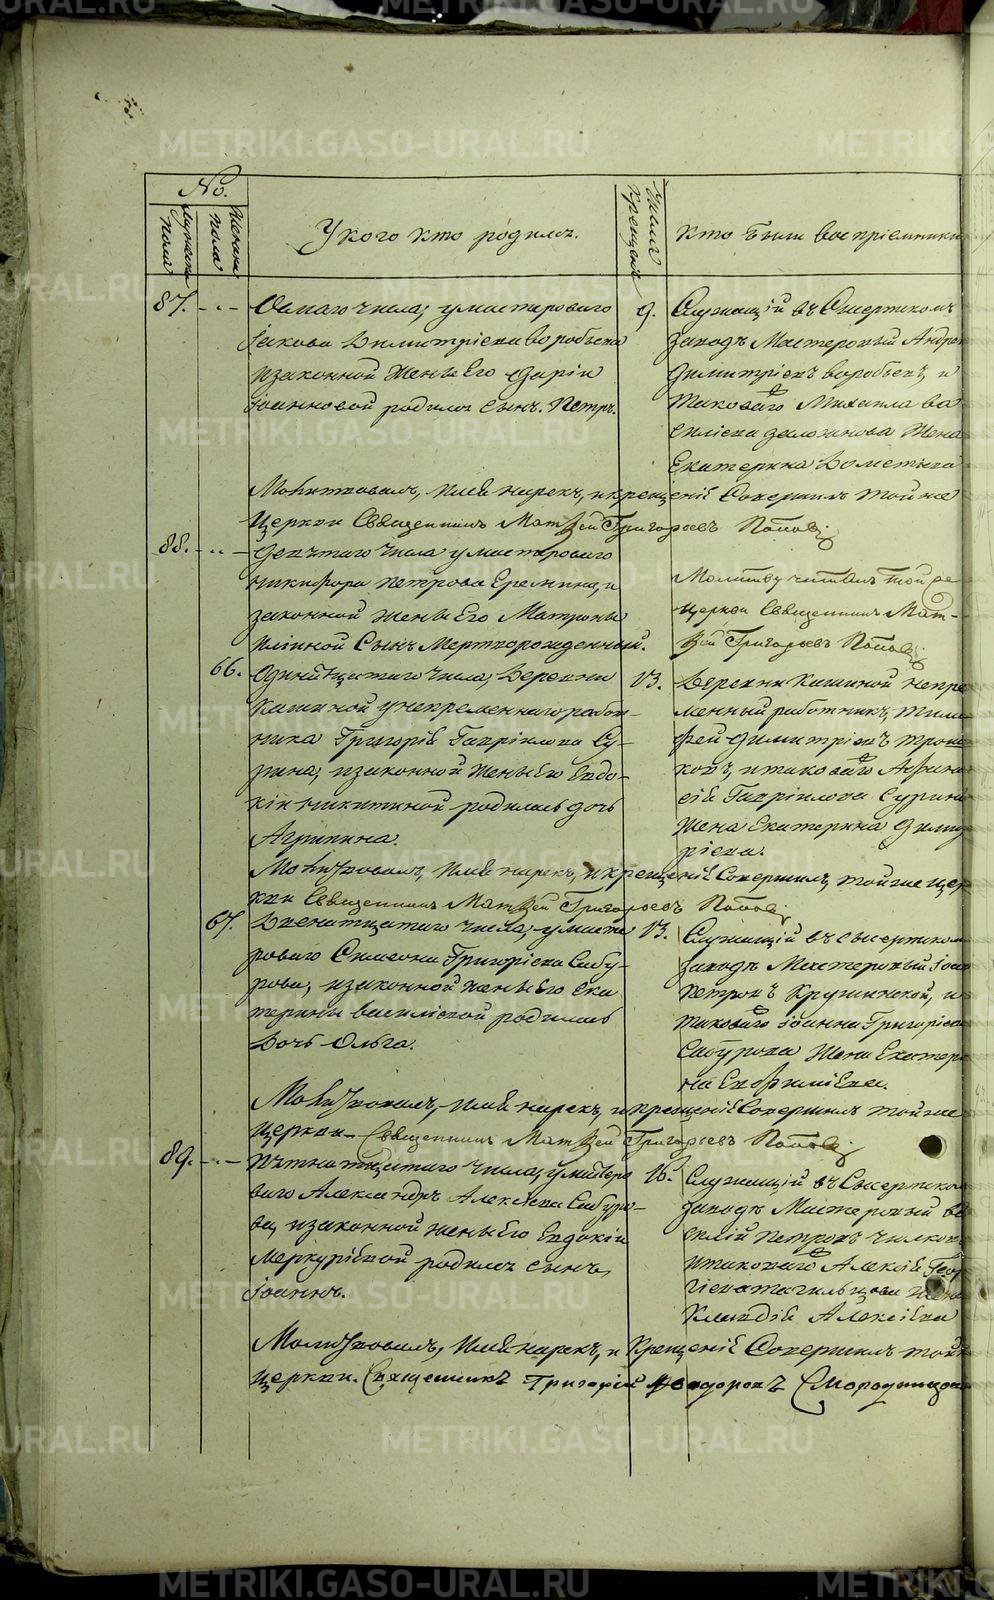 METRIKI.GASO-URAL.RU
No.
Мужеска пола
Женска пола
У кого кто родился.
Число крещенія
Кто были воспріемники
87. Осмаго числа, у мастероваго
Іакова Димитріева Воробьева
и законной жены Его Даріи
Іоанновой родился сынъ Петръ.
9. Служащій въ Сысертскомъ
заводѣ Мастеровый Андрей
Димитріевъ Воробьевъ, и
таковаго Михаила Ва
силіева жена
Екатерина
Молитвовалъ, Имя нарекъ, и крещеніе Совершилъ тойже
Церкви Священникъ Матѳей Григорьевъ Поповъ
88. Девятаго числа у мастероваго
Никифора Петрова Еремина, и
законной жены Его Матроны
Иліиной Сынъ Мертворожденный.
Молитву читалъ той же
церкви Священникъ Мат-
ѳей Григорьевъ Поповъ
66. Одинатцатаго числа, Деревни
Кашиной у непременнаго работ-
ника Григорія Гавріилова Су-
рина, и законной жены Его Евдо-
кіи Никитиной родилась дочь
Агрипина.
13. Деревни Кашиной непре
менный работникъ, Тимо
фей Димитріевъ
и таковаго Афана
сія Гавріилова Сурина
Жена Екатерина Димит
ріева.
Молитвовалъ, Имя нарекъ, и крещеніе Совершилъ, тойже цер
кви Священникъ Матѳей Григорьевъ Поповъ
67. Двенатцатаго числа, у масте
роваго Симеона Григоріева Сабу-
рова, и законной жены Его Ека
терины Василіевой родилась
Дочь Ольга.
13. Служащій въ Сысертском
заводѣ Мастеровый Іоа
Петровъ и
таковаго Іоанна Григоріева
Сабурова жена Екатери
на Евфиміева.
Молитвовалъ, Имя нарекъ, и крещеніе Совершилъ тойже
Церкви Священникъ Матѳей Григорьевъ Поповъ
89. Пятнатцатаго числа, у мастеро
ваго Александра Алексѣева Сабуро-
ва, и законной жены Его Евдокіи
Меркуріевой родился сынъ,
Іоаннъ.
16. Служащій въ Сысертском
заводѣ Мастеровый Ва
силій Петровъ
и таковаго Алексія Геор
гіева жена
Клавдія Алексіева
Молитвовалъ, Имя нарекъ, и Крещеніе Совершилъ той
церкви Священникъ Григорій Феодоровъ Смородинцовъ